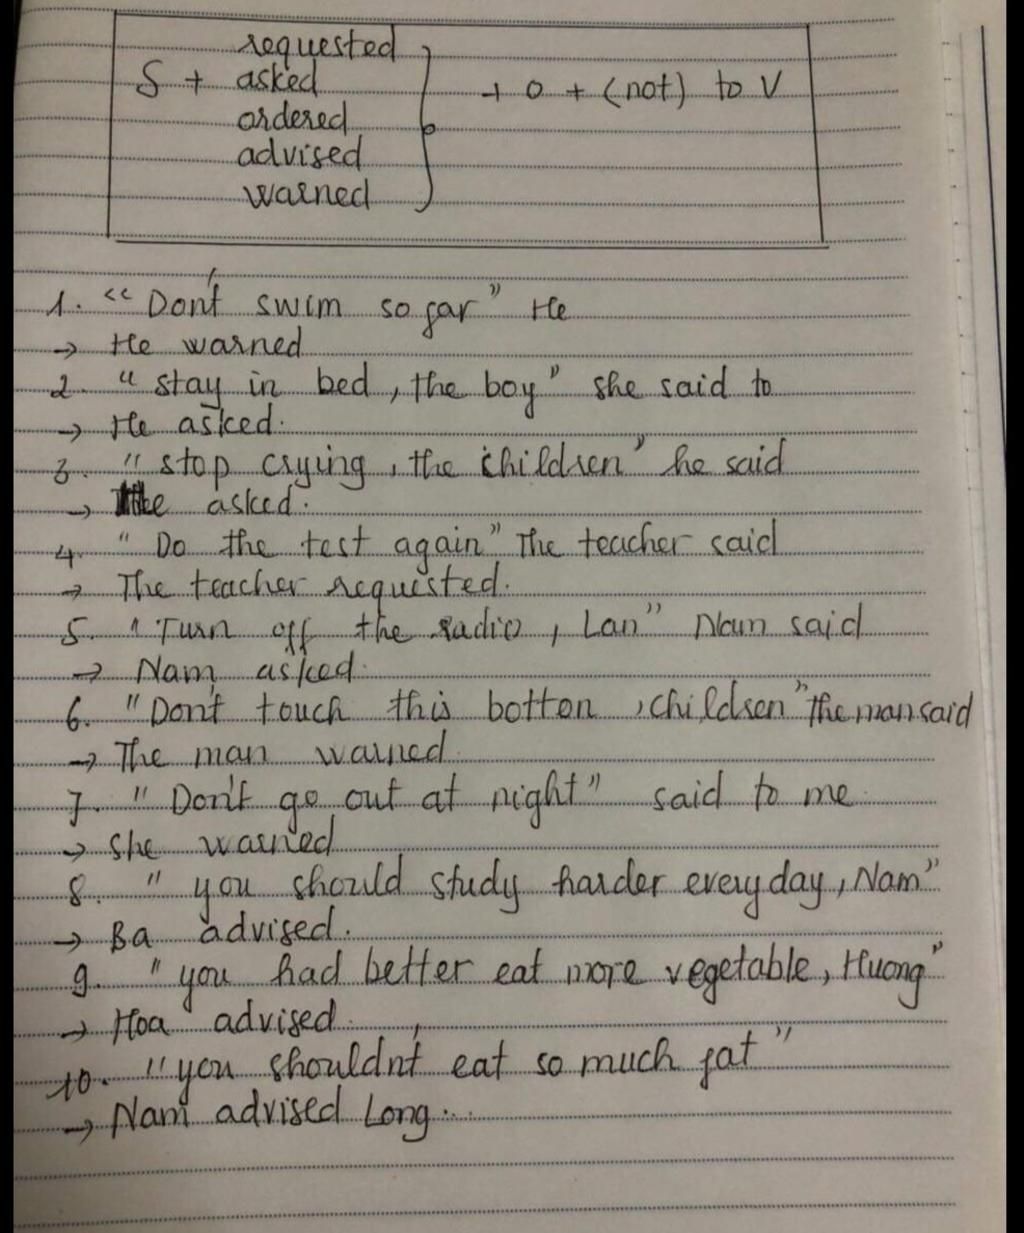 requested
S + asked + O + (not) to V
ordered
advised
warned
1. "Don't swim so far" He
→ He warned
2. "stay in bed, the boy" she said to
→ He asked.
3. "stop crying, the children" he said
→ He asked.
4. "Do the test again" The teacher said
→ The teacher requested.
5. "Turn off the radio, Lan" Nam said
→ Nam asked.
6. "Don't touch this botton, children" the man said
→ The man warned
7. "Don't go out at night" said to me
→ She warned
8. "you should study harder every day, Nam"
→ Ba advised.
9. "you had better eat more vegetable, Huong"
→ Hoa advised.
10. "you shouldn't eat so much fat"
→ Nam advised Long...